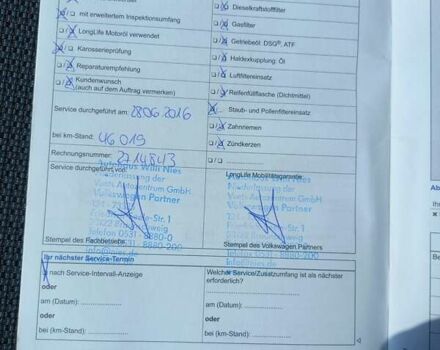 mit erweitertem Inspektionsumfang
LongLife Motoröl verwendet
Karosserieprüfung
Reparaturempfehlung
Kundenwunsch
(auch auf dem Auftrag vermerken)
Service durchgeführt am: 28.06.2016
bei km-Stand: 46 019
Rechnungsnummer: 2714843
Service durchgeführt von:
Autohaus Willi Nies
Niederlassung der
Voets Autozentrum GmbH
Volkswagen Partner
Telefon 0531 - 8880-0
8880-200
Stempel des Fachbetriebs:
Dieselkraftstofffilter
Gasfilter
Getriebeöl: DSG®, ATF
Haldexkupplung: Öl
Luftfiltereinsatz
Reifenfüllflasche (Dichtmittel)
Staub- und Pollenfiltereinsatz
Zahnriemen
Zündkerzen
LongLife Mobilitätsgarantie:
Autohaus Willi Nies
Niederlassung der
Voets Autozentrum GmbH
Volkswagen Partner
Stempel des Volkswagen Partners
Ihr nächster Service-Termin
nach Service-Intervall-Anzeige
oder
am (Datum):
oder
bei (km-Stand):
Welcher Service/Zusatzumfang ist als nächster
erforderlich?
am (Datum):
oder
bei (km-Stand):